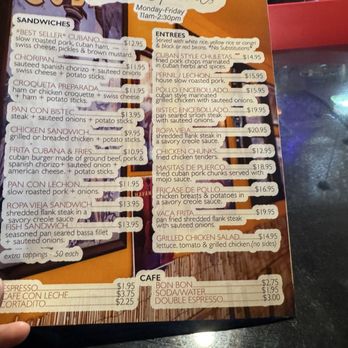 Monday-Friday
11am-2:30pm
SANDWICHES
*BEST SELLER* CUBANO $12.95
slow roasted pork, cuban ham,
swiss cheese, pickles & brown mustard
CHORIPAN $11.95
spicy spanish chorizo + sauteed onions
+ swiss cheese + potato sticks.
CROQUETA PREPARADA $11.95
ham or chicken croquette + swiss cheese
+ ham + potato sticks.
PAN CON BISTEC $13.95
steak + sauteed onions + potato sticks.
CHICKEN SANDWICH $9.95
grilled or breaded chicken + potato sticks.
FRITA CUBANA & FRIES $10.95
cuban burger made of ground beef, pork &
spanish chorizo+ sauteed onion +
american cheese. + potato sticks.
PAN CON LECHON $11.95
slow roasted pork + onions.
ROPA VIEJA SANDWICH $13.95
shredded flank steak in a
savory creole sauce
FISH SANDWICH $13.95
seasoned pan seared bassa filet
+ sauteed onions.
extra toppings .50 each
ENTREES
Served with white rice, yellow rice or congri
& black or red beans. *No Substitutions*
CUBAN STYLE CHULETAS $14.95
fried pork chops marinated
in cuban herbs and spices
PERNIL/LECHON $15.95
house slow roasted pork
POLLO ENCEBOLLADO $15.95
cuban style marinated
grilled chicken with sauteed onions.
BISTEC ENCEBOLLADO $19.95
pan seared sirloin steak
with sauteed onions.
ROPA VIEJA $20.95
shredded flank steak
in a savory creole sauce.
CHICKEN CHUNKS $12.95
fried chicken tenders.
MASITAS DE PUERCO $18.95
fried cuban pork chunks served with
mojo sauce.
FRICASE DE POLLO $16.95
chicken breasts & potatoes in a
savory creole sauce.
VACA FRITA $19.95
pan fried shredded flank steak
with sauteed onions.
GRILLED CHICKEN SALAD $14.95
lettuce, tomato & grilled chicken.(no sides)
CAFE
ESPRESSO $1.95
CAFE CON LECHE $3.75
CORTADITO $2.25
BON BON $2.75
SODA/WATER $1.95
DOUBLE ESPRESSO $3.00